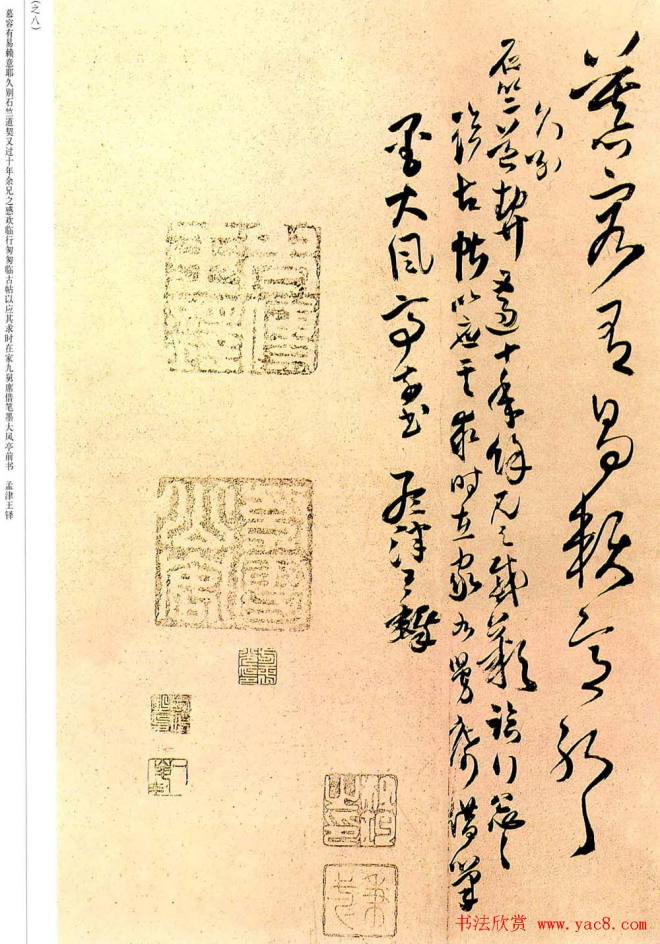 慕容有易賴意耶
久別
石竺道契又過十年餘兄之感歎臨行匆匆
臨古帖以應其求時在家九舅席借筆
墨大風亭前書 孟津王鐸
(之八)
慕容有易赖意耶久别石竺道契又过十年余兄之感欢临行匆匆临古帖以应其求时在家九舅席借笔墨大风亭前书 孟津王铎
书法欣赏 www.yac8.com